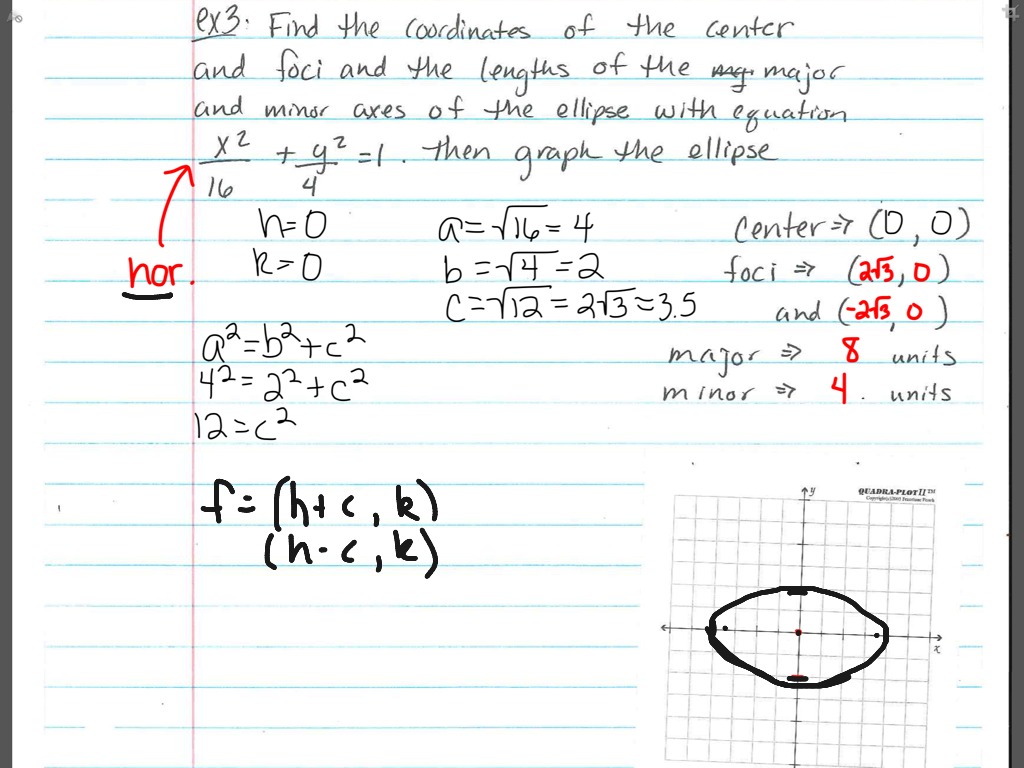 ex3: Find the coordinates of the center
and foci and the lengths of the maj. major
and minor axes of the ellipse with equation
x²/16 + y²/4 = 1. Then graph the ellipse
hor.
h = 0
k = 0
a = √16 = 4
b = √4 = 2
c = √12 = 2√3 ≈ 3.5
center ⇒ (0, 0)
foci ⇒ (2√3, 0)
and (-2√3, 0)
major ⇒ 8 units
minor ⇒ 4. units
a² = b² + c²
4² = 2² + c²
12 = c²
f = (h+c, k)
(h-c, k)
QUADRA-PLOT II™
y
x